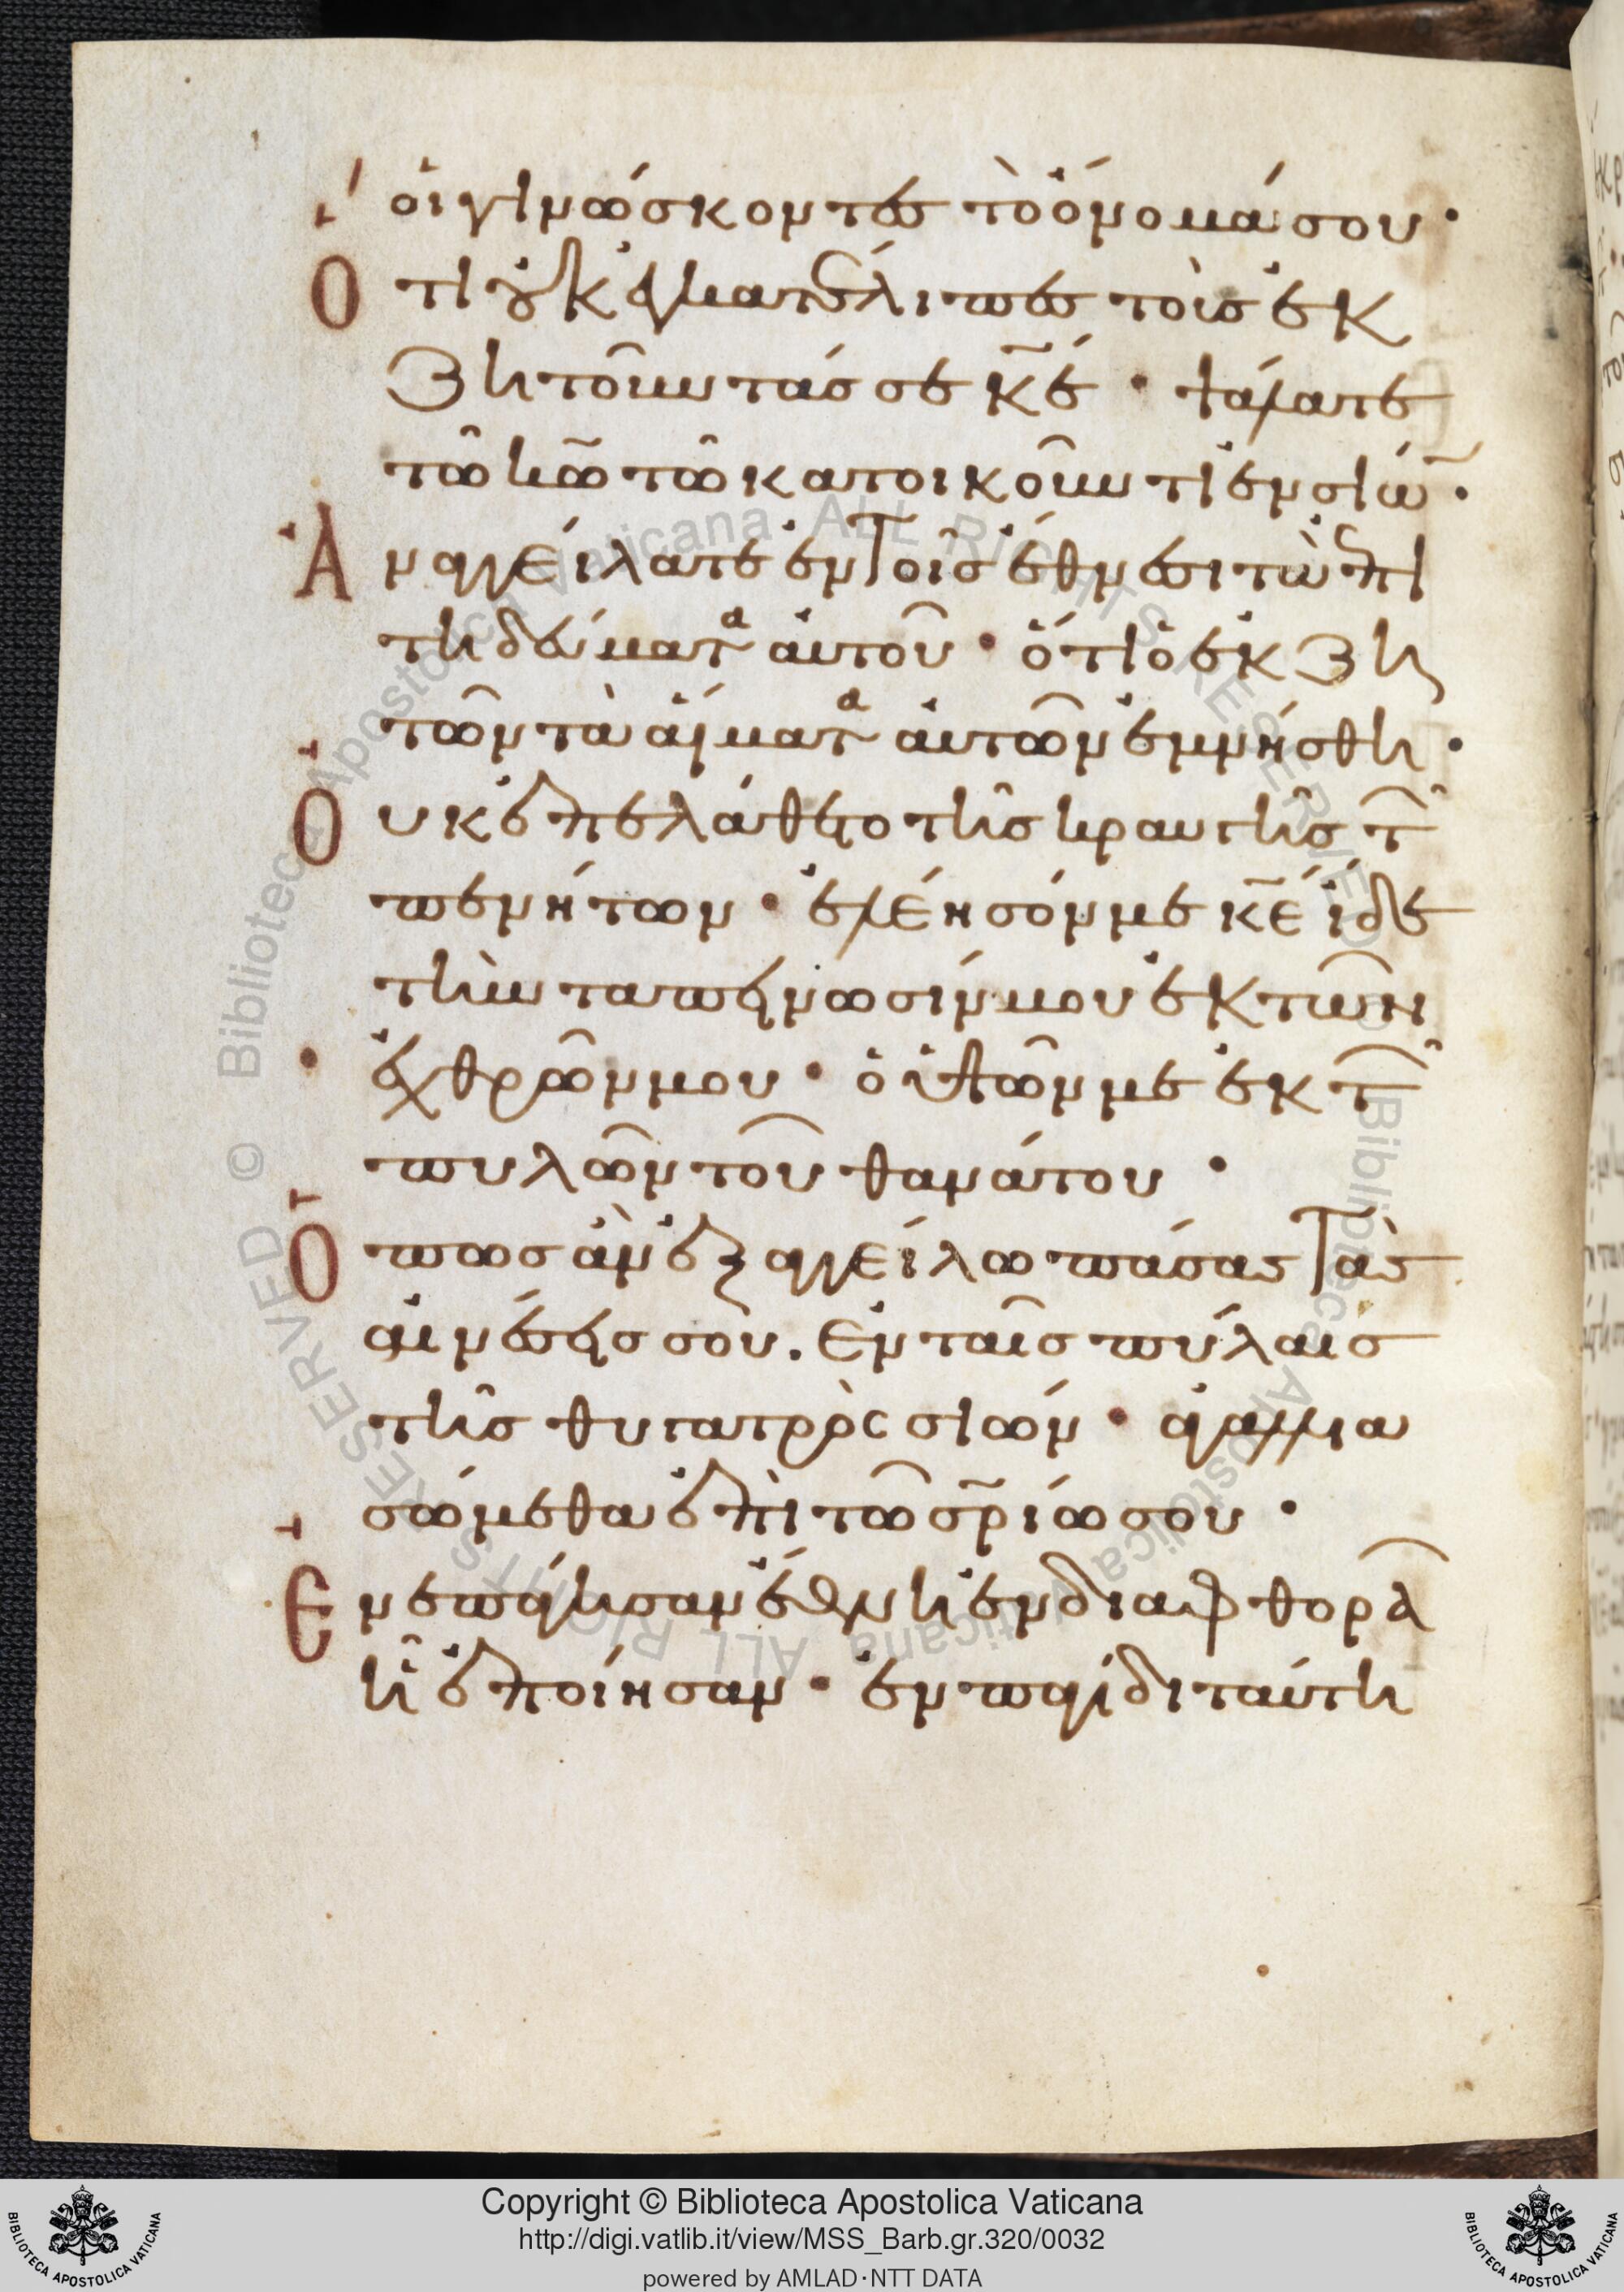 οἱ γινώσκοντες τὸ ὄνομά σου·
Ὅτι οὐκ ἐγκατέλιπες τοὺς ἐκ
ζητοῦντάς σε κ̅ε̅· ψάλατε
τῶ κ̅ω̅ τῶ κατοικοῦντι ἐν σιών·
Ἀναγγείλατε ἐν τοῖς ἔθνεσι τὰ ἐπι
τηδεύματα αὐτοῦ· ὅτι ὁ ἐκζη
τῶν τὰ αἵματα αὐτῶν ἐμνήσθη·
Οὐκ ἐπελάθετο τῆς κραυγῆς τῶν
πενήτων· ἐλέησόν με κ̅ε̅ ἴδε
τὴν ταπείνωσίν μου ἐκ τῶν
ἐχθρῶν μου· ὁ ὑψῶν με ἐκ τῶν
πυλῶν τοῦ θανάτου·
Ὅπως ἂν ἐξαγγείλω πάσας τὰς
αἰνέσεις σου. ἐν ταῖς πύλαις
τῆς θυγατρὸς σιών· ἀγαλλια
σώμεθα ἐπὶ τῶ σ̅ρ̅ίω σου·
Ἐνεπάγησαν ἔθνη ἐν διαφθορᾶ
ἧ ἐποίησαν· ἐν παγίδι ταύτη
Copyright © Biblioteca Apostolica Vaticana
http://digi.vatlib.it/view/MSS_Barb.gr.320/0032
powered by AMLAD·NTT DATA